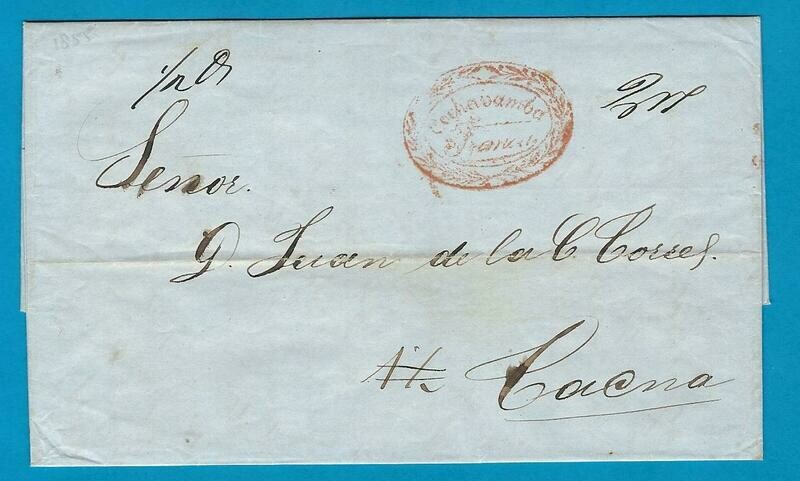 1855
Cochabamba
Franca
Señor.
D. Juan de la C. Torres.
Tacna